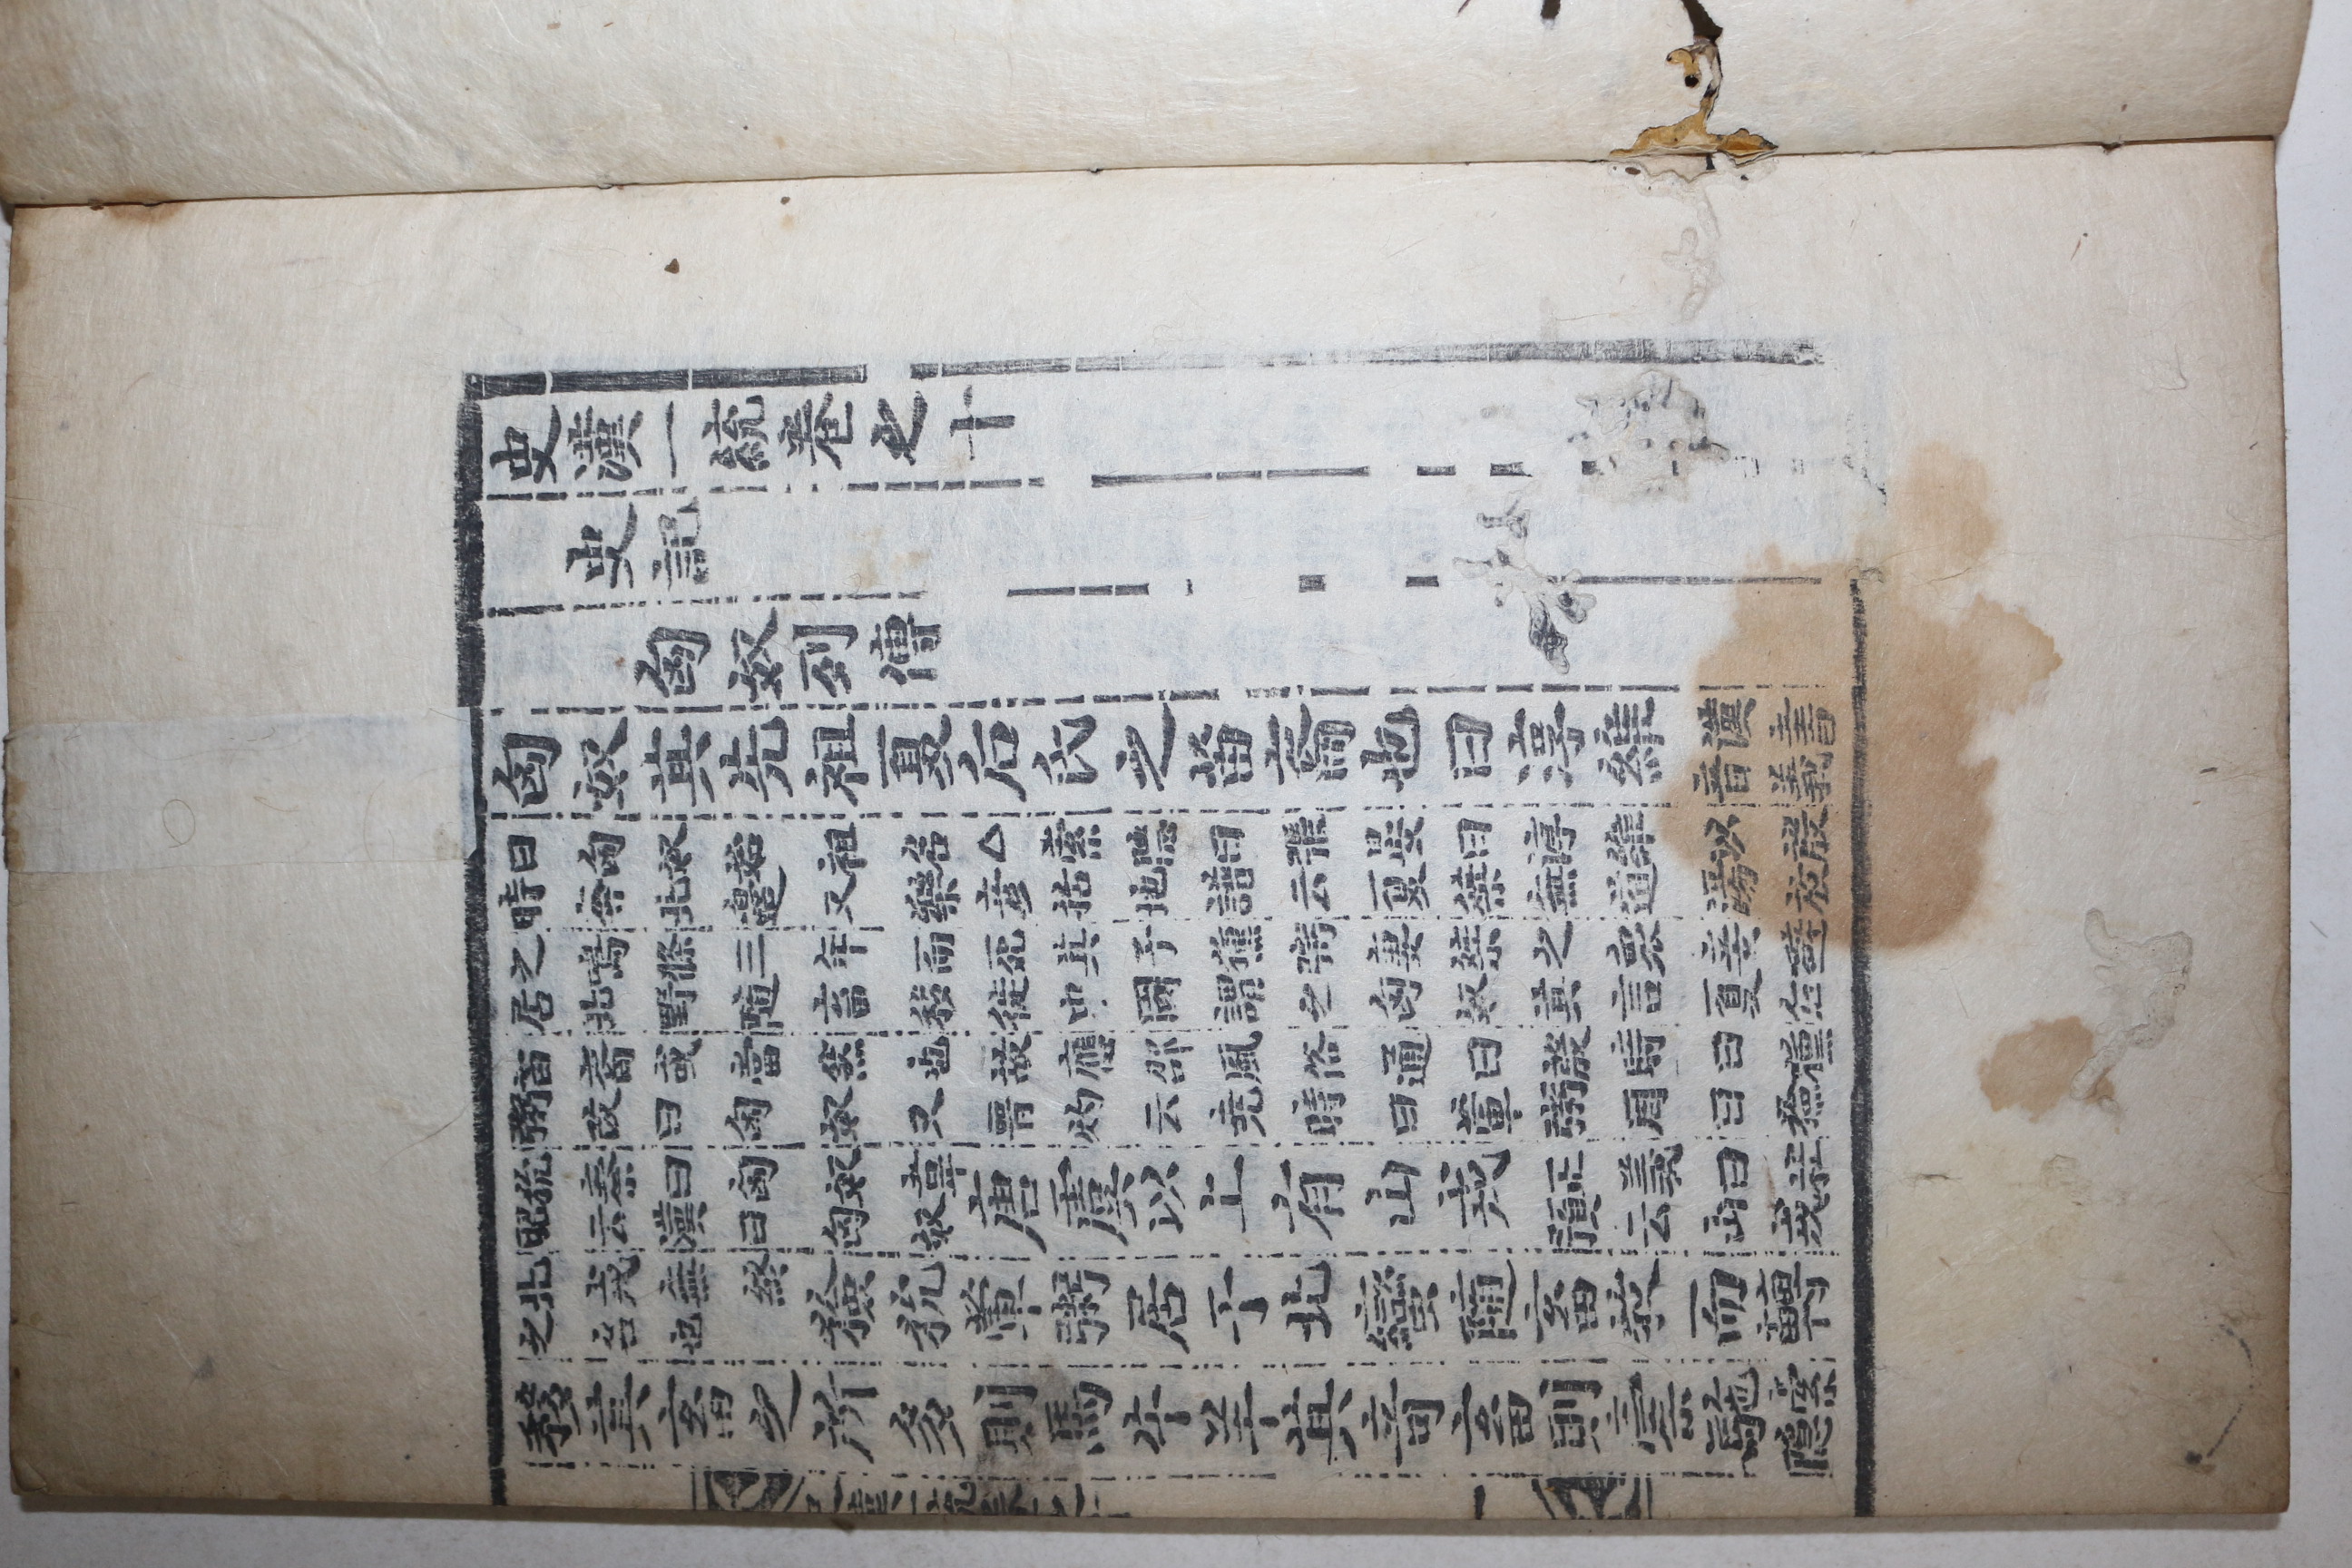 史漢一統卷之十
史記
匈奴列傳
匈奴其先祖夏后氏之苗裔也曰淳維漢書音義
曰匈奴始祖名△索隱曰張晏曰淳維以殷
時奔北邊又樂彦括地譜云夏桀無道湯放
之鳴條三年而死其子獯粥妻桀之衆妾避
居北野隨畜移徙中國謂之匈奴其言夏后
苗裔或當然也故應邵風俗通曰殷時曰獯
粥改曰匈奴又晋灼云堯時曰葷粥周曰獫
狁秦曰匈奴韋
昭云漢曰匈奴
唐虞以上有山戎
正義曰杜
預云山戎
北戎無終
之名也
獫狁葷粥居于北蠻隨畜牧而轉
移其畜之所多則馬牛羊其竒畜則橐駞索隱